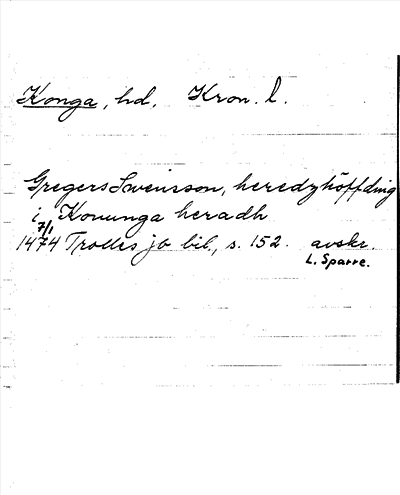 Konga, hd. Kron. l.
Gregers Swensson, heredzhöffding
i Konunga heradh
7/1
1474 Trolles jb bil., s. 152. avskr.
L. Sparre.